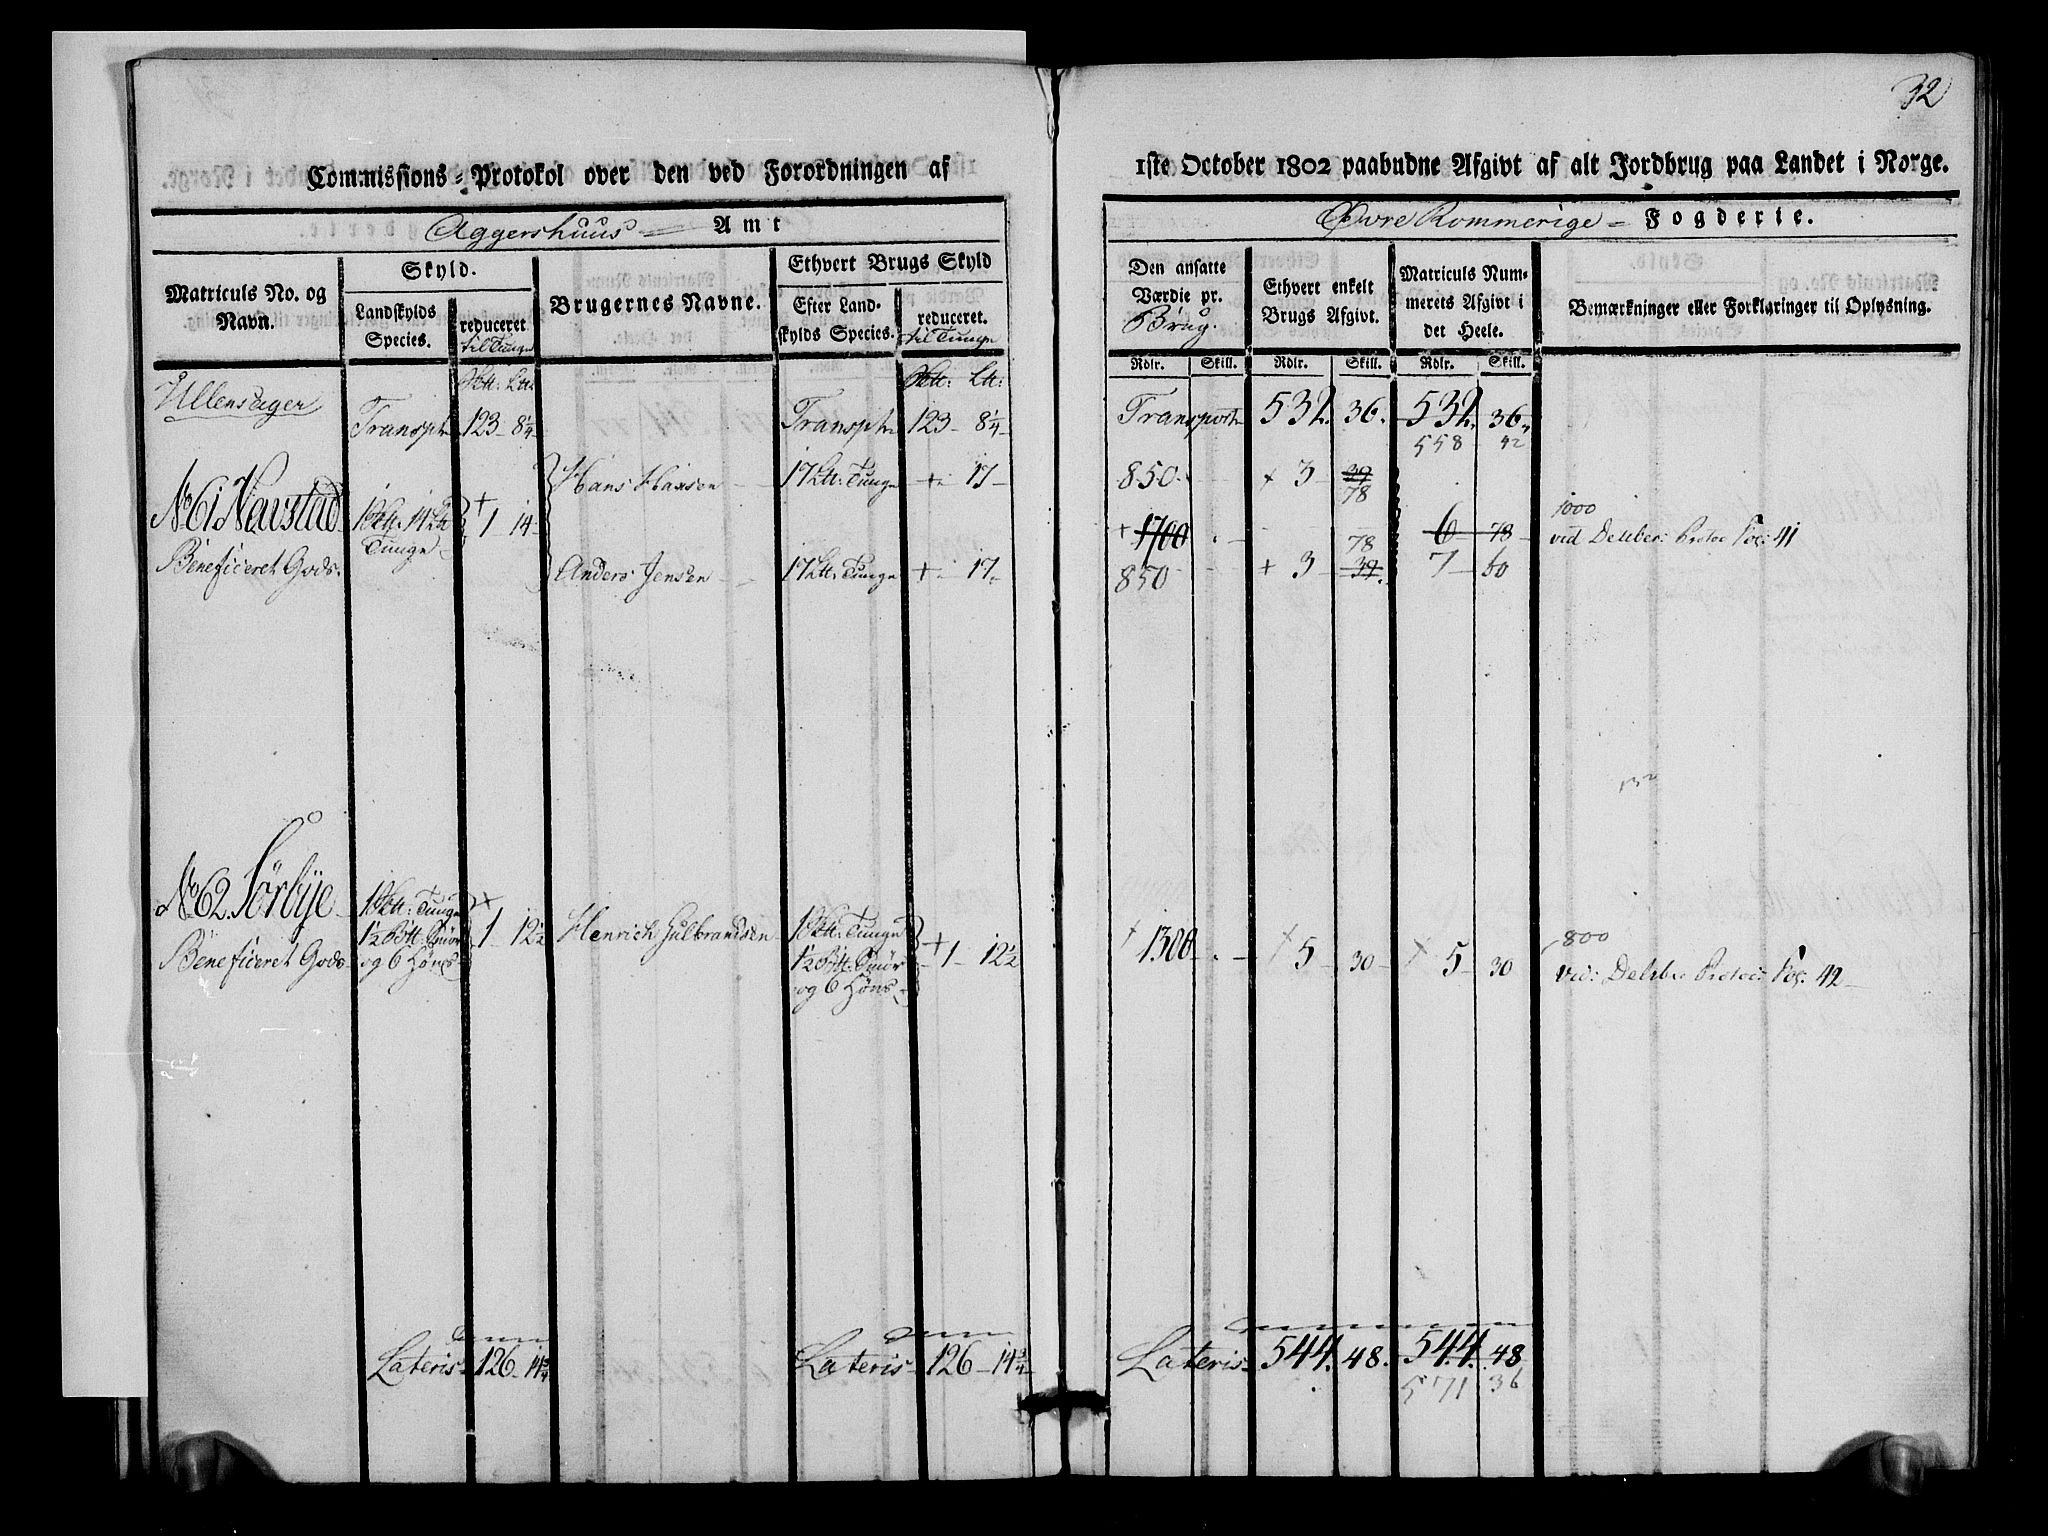 32
Commissions-Protokol over den ved Forordningen af
1ste October 1802 paabudne Afgivt af alt Jordbrug paa Landet i Norge.
Aggershuus Amt
Øvre Rommerige Fogderie.
Matriculs No. og Navn.
Skyld.
Landskylds Species.
reduceret til Tunge
Brugernes Navne.
Ethvert Brugs Skyld
Efter Landskylds Species.
reduceret. til Tunge
Den ansatte Værdie pr. Brug.
Ethvert enkelt Brugs Afgivt.
Matriculs Nummerets Afgivt i det Heele.
Bemærkninger eller Forklaringer til Oplysning.
Rdlr. Skill. Rdlr. Skill. Rdlr. Skill.
Ullensager
Transpt 123 - 8 1/4 Transpt 123 - 8 1/4 Transport 532. 36. 532. 36.
558 42
Hans Hansen 17 Ltt: Tunge + 17 850 + 3 39
78
No 61 Navstad 1 14 + 1 14 + 1700 78 6 78
1000
vid Deliber: Protoc Pag: 41
Tunge
Beneficeret Gods. Anders Jensen 17 Ltt: Tunge + 17 850 + 3 39. 7 60
No 62. Sørbye 1 Tunge + 1 12 1/2 Henrich Gulbrandsen 1 Tunge + 1 12 1/2 + 1300 + 5 30 + 5 30
800
Beneficeret Gods 1/2 Smör 1/2 Smör
vid: Deliber Protoc: Pag. 42
og 6 Höns og 6 Höns
Lateris 126 - 14 3/4 Lateris 126 - 14 3/4 Lateris 544. 48. 544. 48
571 36